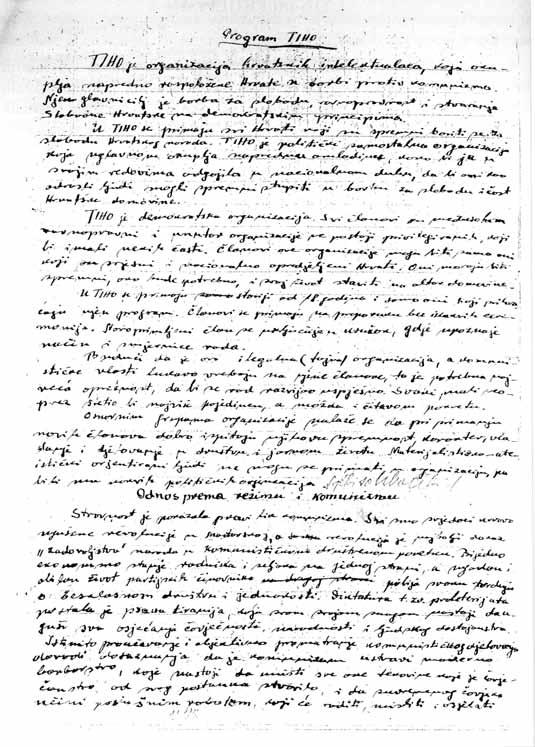 Program TIHO
TIHO je organizacija hrvatskih intelektualaca, koja oku-
plja napredno raspoložene Hrvate u borbi protiv komunizma.
Njen glavni cilj je borba za slobodu, ravnopravnost i stvaranje
Slobodne Hrvatske na demokratskim principima.
U TIHO se primaju svi Hrvati koji su spremni boriti se za
slobodu Hrvatskog naroda. TIHO je politički samostalna organizacija
koja uglavnom okuplja naprednu omladinu, kako bi je u
svojim redovima odgojila u nacionalnom duhu, da bi oni kao
odrasli ljudi mogli spremni stupiti u borbu za slobodu i čast
Hrvatske domovine.
TIHO je demokratska organizacija. Svi članovi su međusobno
ravnopravni i unutar organizacije ne postoji privilegiranih, koji
bi imali neke časti. Članovi ove organizacije mogu biti samo oni
koji su svjesni i nacionalno opredjeljeni Hrvati. Oni moraju biti
spremni, ako bude potrebno, i svoj život staviti na oltar domovine.
U TIHO se primaju stariji od 18 godina i samo oni koji prihva-
ćaju njen program. Članovi se primaju na preporuku bez ikakvih cere-
monija. Novoprimljeni član se uključuje u, gdje upoznaje
način i smjernice rada.
Budući da je ovo ilegalna (tajna) organizacija, a komuni-
stičke vlasti budno vrebaju na njene članove, to je potrebna naj-
veća opreznost, da bi se rad razvijao uspješno. Svaki mali neo-
prez štetio bi najviše pojedincu, a možda i čitavom pokretu.
Osnovnim grupama organizacije nalaže se da pri primanju
novih članova dobro ispitaju njihovu spremnost, karakter, vla-
danje i djelovanje u društvu i javnom životu. Materijalistično-ate-
istički orjentirani ljudi ne mogu se primati u organizaciju, pa
bili oni
Odnos prema režimu i komunizmu
Stvarnost je pokazala pravi lik komunizma. Svi smo svjedoci krvavo
ugušene revolucije u Mađarskoj, a revolucija je najbolji dokaz
"zadovoljstva" naroda u komunističkom društvenom poretku. Bijedno
ekonomsko stanje radnika i seljaka na jednoj strani, a ugodan i
život partijskih činovnika pobija svaku tvrdnju
o besklasnom društvu i jednakosti. Diktatura t.zv. proleterijata
postala je prava tiranija, koja svom svojom snagom nastoji da u-
guši sva osjećanja čovječnosti, narodnosti i ljudskog dostojanstva.
Istinito proučavanje i objektivno promatranje komunističkog djelovanja
dovodi do zaključka, da je komunizam ustvari moderno
barbarstvo, koje nastoji da uništi sve one tekovine koje je čovje-
čanstvo, od svog postanka stvorilo, i da suvremenog čovjeka
učini poslušnim robotom, koji će raditi, misliti i osjećati